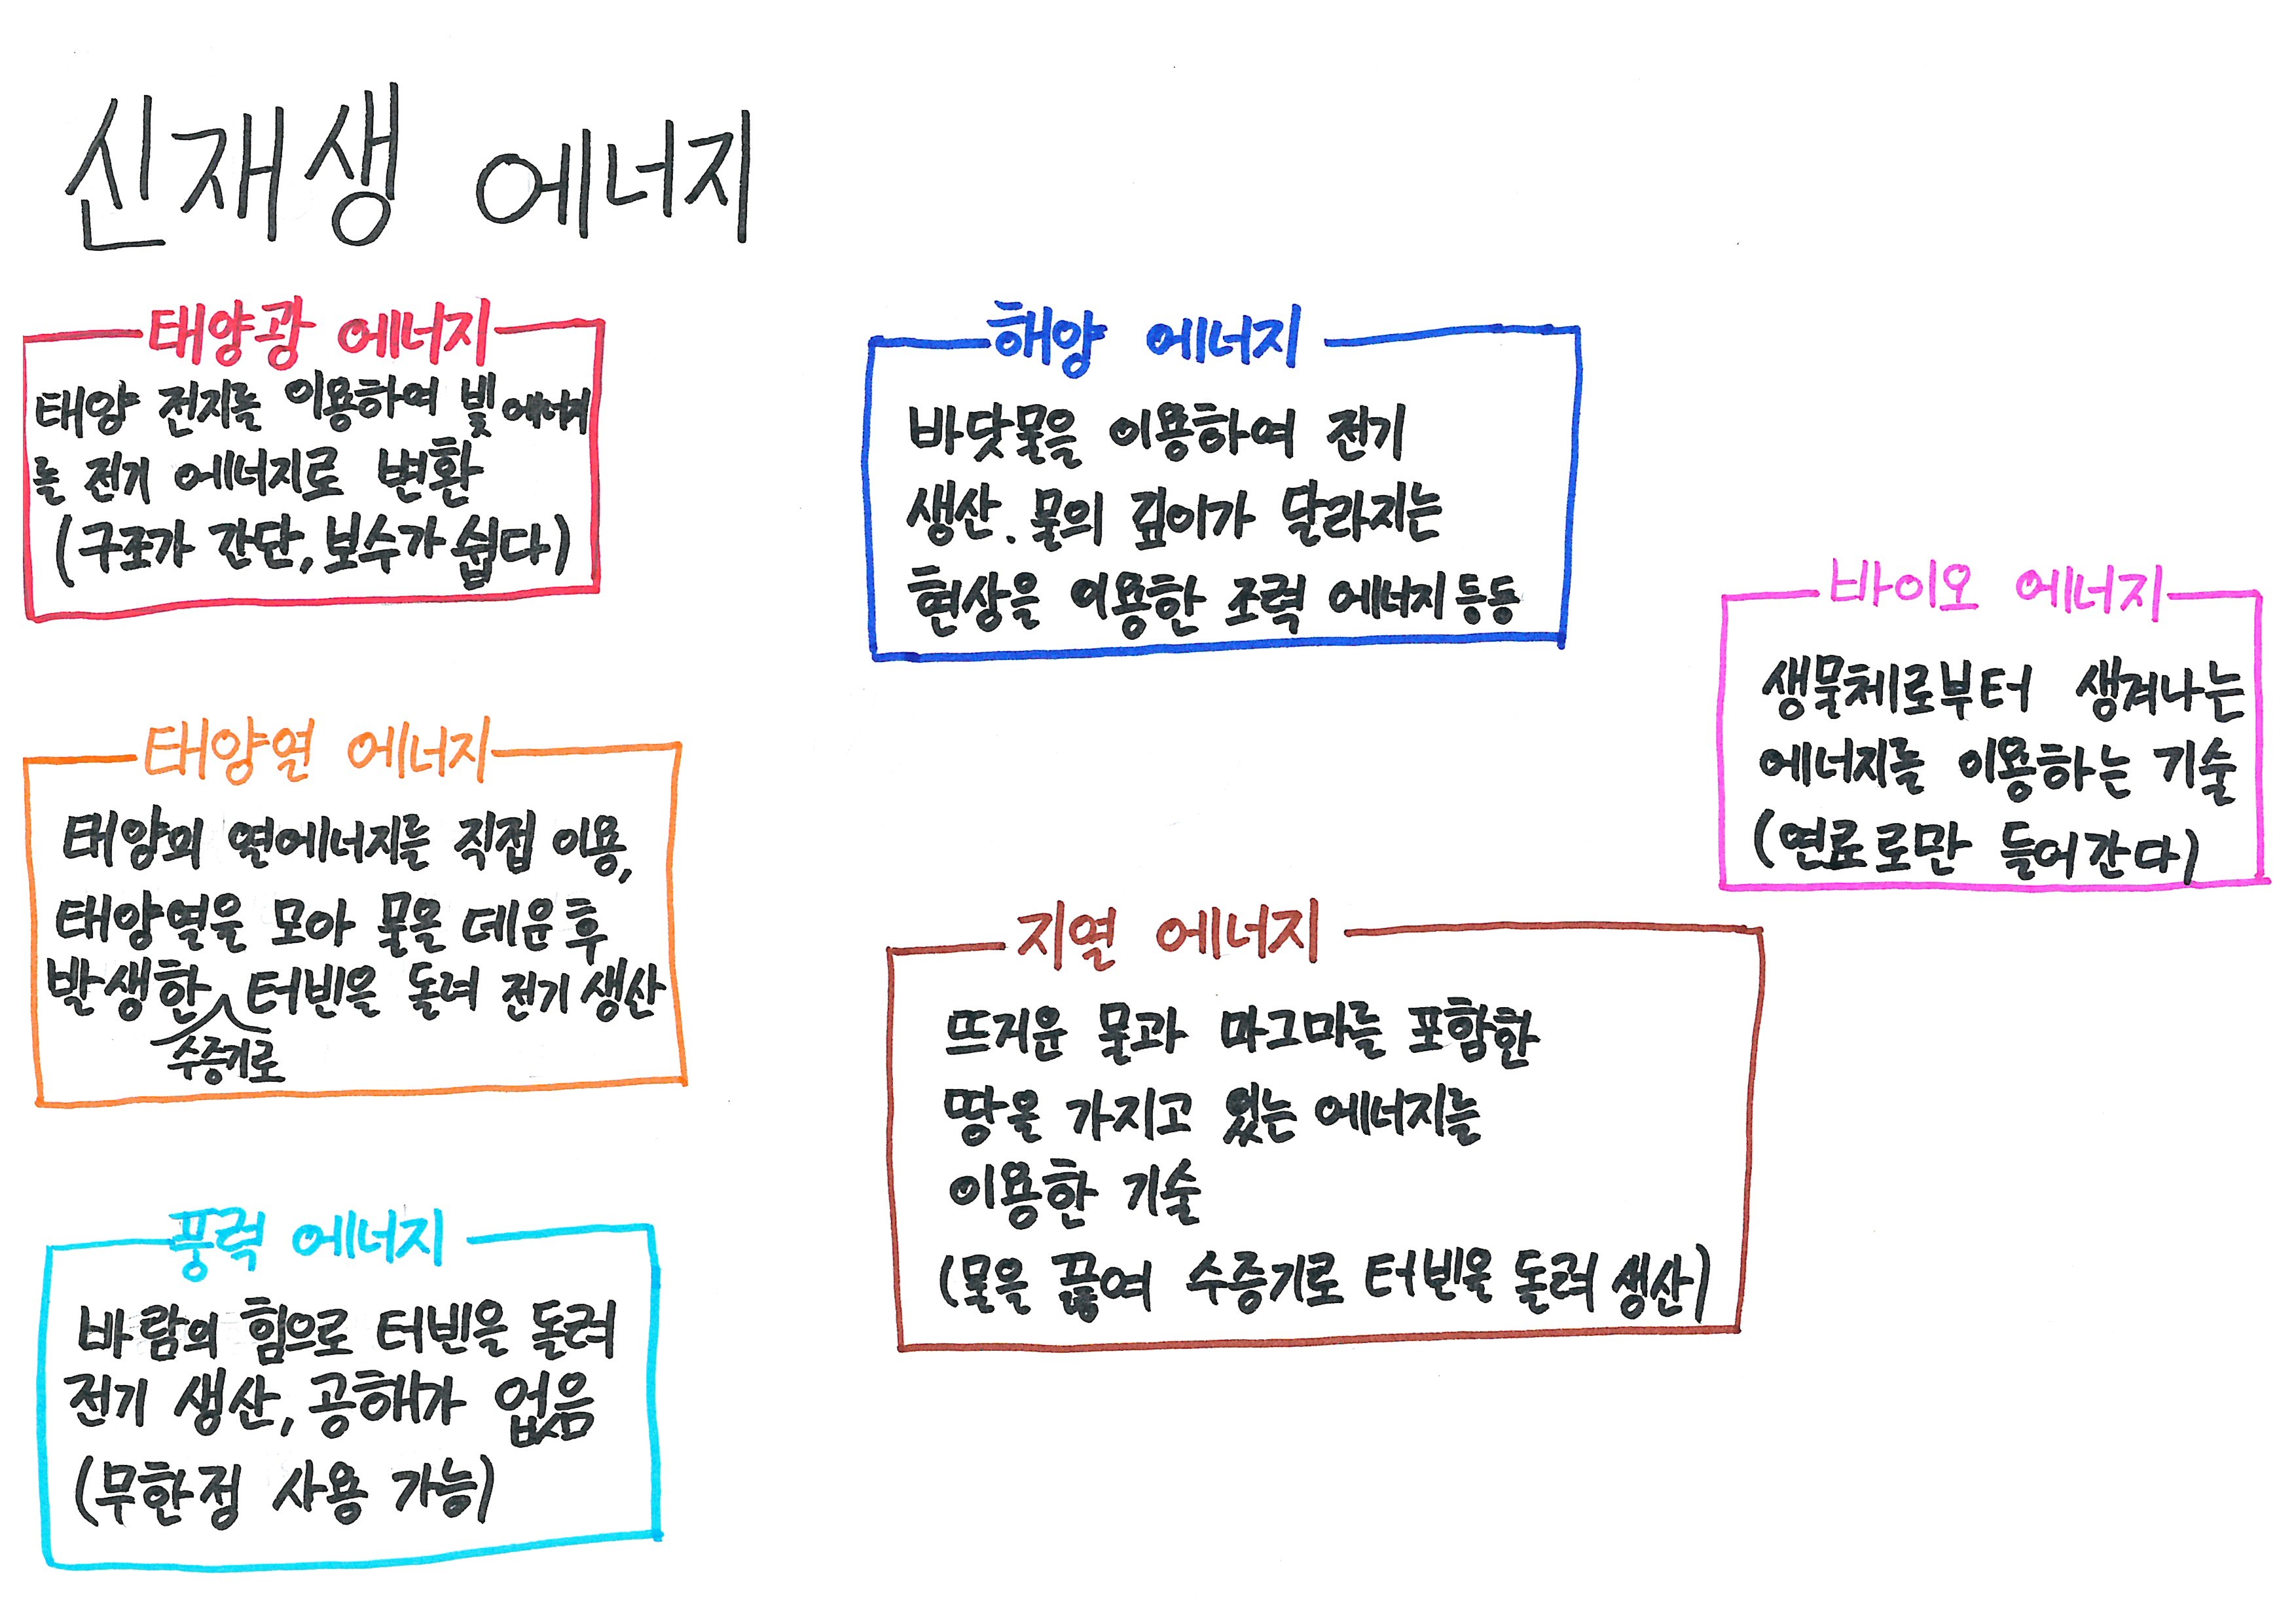 신재생 에너지
태양광 에너지
태양 전지를 이용하여 빛에너지
를 전기 에너지로 변환
(구조가 간단, 보수가 쉽다)
태양열 에너지
태양의 열에너지를 직접 이용,
태양열을 모아 물을 데운 후
발생한 터빈을 돌려 전기 생산
수증기로
풍력 에너지
바람의 힘으로 터빈을 돌려
전기 생산, 공해가 없음
(무한정 사용 가능)
해양 에너지
바닷물을 이용하여 전기
생산. 물의 깊이가 달라지는
현상을 이용한 조력 에너지 등등
지열 에너지
뜨거운 물과 마그마를 포함한
땅을 가지고 있는 에너지를
이용한 기술
(물을 끓여 수증기로 터빈을 돌려 생산)
바이오 에너지
생물체로부터 생겨나는
에너지를 이용하는 기술
(연료로만 들어간다)